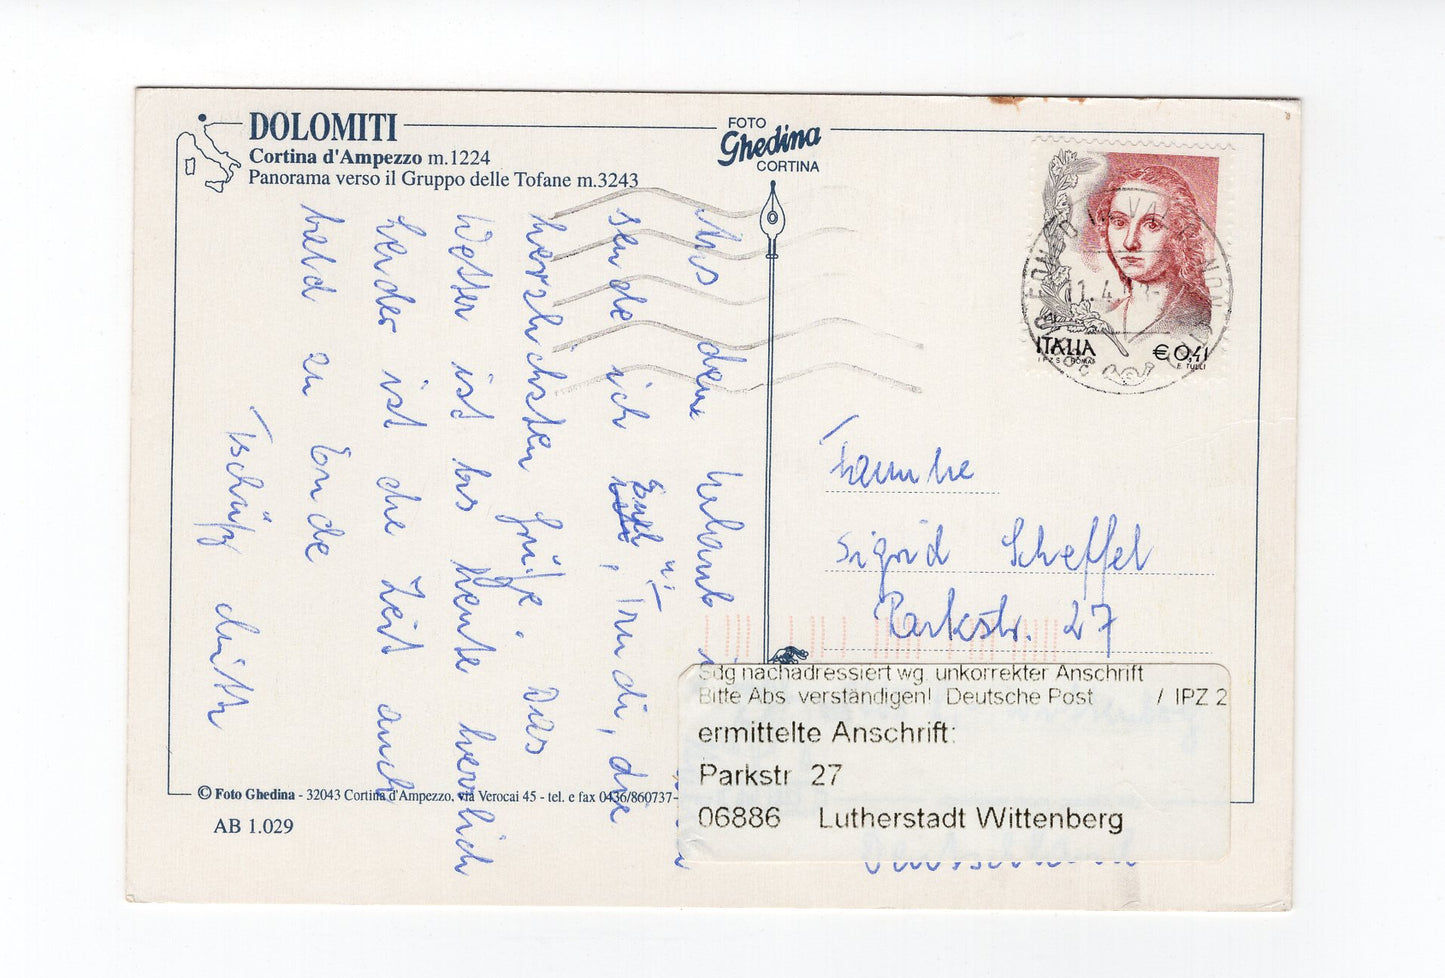 DOLOMITI
Cortina d'Ampezzo m.1224
Panorama verso il Gruppo delle Tofane m.3243
FOTO
Ghedina
CORTINA
Aus dem Urlaub
sende ich Euch, u. Trudi, die
herzlichsten Grüße. Das
Wetter ist bis heute herrlich
Leider ist die Zeit auch
bald zu Ende
Tschüß
ITALIA
€ 0,41
I.P.Z.S. ROMA
E. TULLI
Familie
Sigrid Scheffel
Parkstr. 27
Sdg nachadressiert wg. unkorrekter Anschrift
Bitte Abs. verständigen! Deutsche Post / IPZ 2
ermittelte Anschrift:
Parkstr 27
06886 Lutherstadt Wittenberg
© Foto Ghedina - 32043 Cortina d'Ampezzo, via Verocai 45 - tel. e fax 0436/860737-
AB 1.029